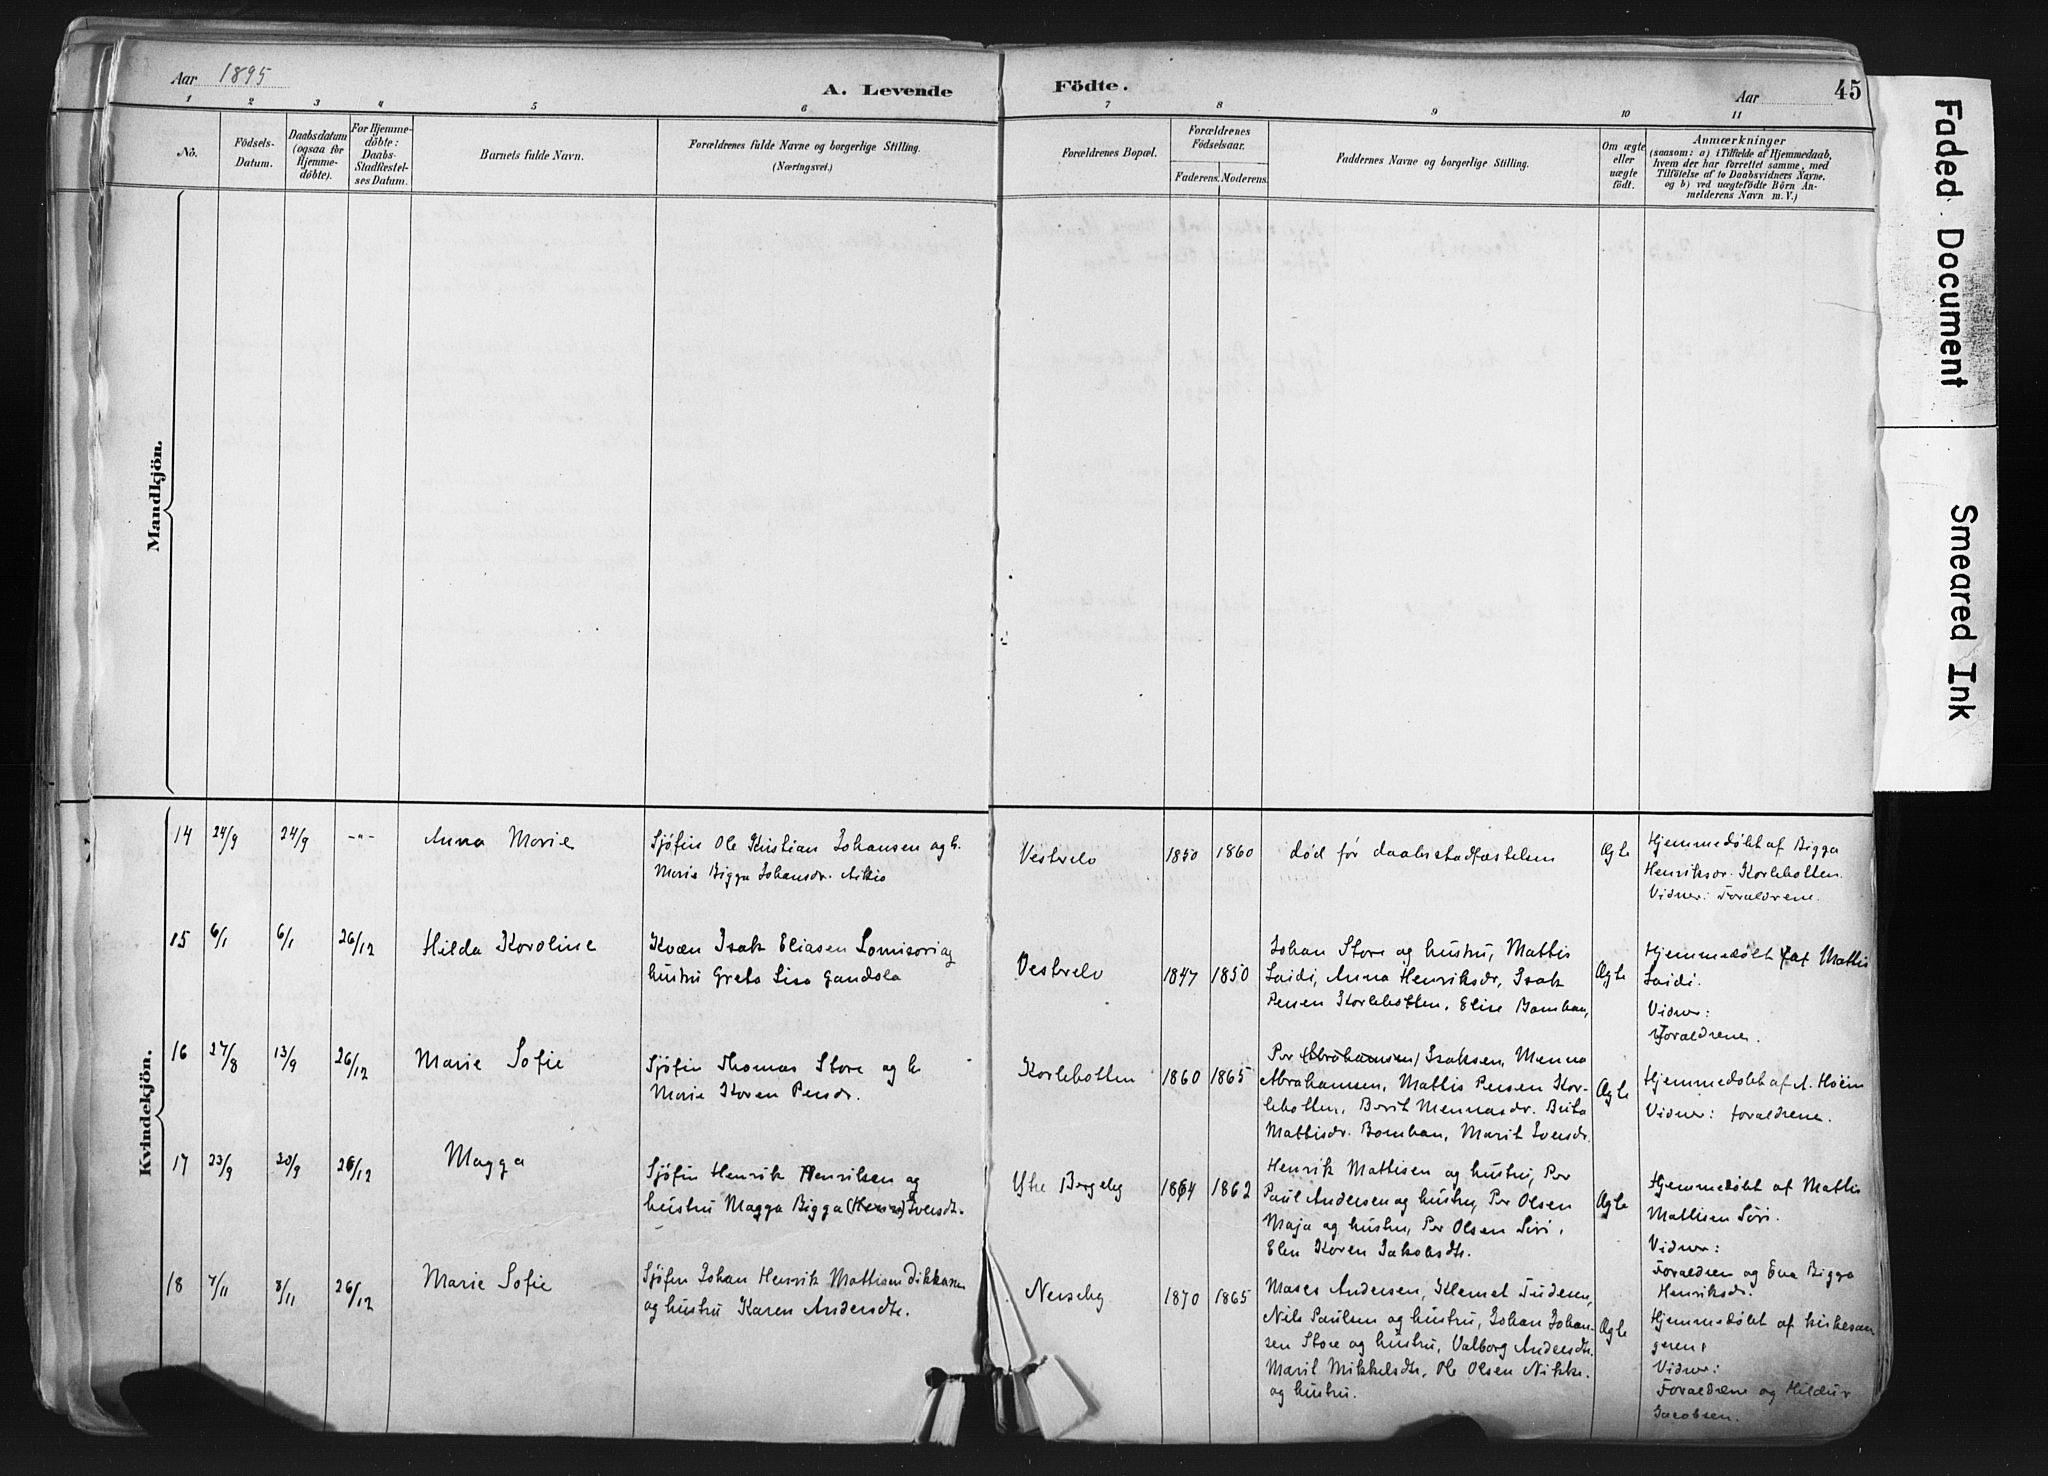 Aar 1895
A. Levende Födte.
Aar 45
1 2 3 4 5 6 7 8 9 10 11
No.
Födsels-
Datum.
Daabsdatum
(ogsaa for
Hjemme-
döbte).
For Hjemme-
döbte:
Daabs-
Stadfæstel-
ses Datum.
Barnets fulde Navn.
Forældrenes fulde Navne og borgerlige Stilling.
(Næringsvei.)
Forældrenes Bopæl.
Forældrenes
Födselsaar.
Faderens. Moderens.
Faddernes Navne og borgerlige Stilling.
Om ægte
eller
uægte
födt.
Anmærkninger
(saasom: a) i Tilfælde af Hjemmedaab,
hvem der har forrettet samme, med
Tilföielse af to Daabsvidners Navne,
og b) ved uægtefödte Börn An-
melderens Navn m. V.)
Mandkjön.
Kvindekjön.
14 24/9 24/9 -"- Anna Marie
Sjøfin Ole Kristian Johansen og h.
Marie Bigga Johansdr. Aikio
Vestrelv 1850 1860
død før daabsstadfæstelsen
Ægte
Hjemmedøbt af Bigga
Henriksdr. Karlebotten.
Vidner: Forældrene.
15 6/1 6/1 26/12 Hilda Karoline
Kvæn Isak Eliasen Lomisari og
hustru Greta Lisa
Vestrelv 1847 1850
Johan Store og hustru, Mattis
Saidi, Anna Henriksdr, Isak
Persen Karlebotten, Elise Bomban,
Ægte
Hjemmedøbt af Mattis
Saidi.
Vidner:
Forældrene.
16 27/8 13/9 26/12 Marie Sofie
Sjøfin Thomas Store og h
Marie Karen Persdr.
Karlebotten 1860 1865
Per (Abrahamsen) Isaksen, Menna
Abrahamsen, Mattis Persen Kar-
lebotten, Berit Mennasdr. Brita
Mattisdr. Bomban, Marit Iversdr.
Ægte
Hjemmedøbt af A. Høem
Vidner: forældrene.
17 23/9 30/9 26/12 Magga
Sjøfin Henrik Henriksen og
hustru Magga Bigga Iversdt.
Ytre Bergeby 1864 1862
Henrik Mattisen og hustru, Per
Paul Andersen og hustru, Per Olsen
Maja og hustru, Per Olsen Siri,
Elen Karen Jakobsdt.
Ægte
Hjemmedøbt af Mattis
Mattisen Siri.
Vidner:
Forældren og Ena Bigga
Henriksdr.
18 7/11 8/11 26/12 Marie Sofie
Sjøfin Johan Henrik Mattisen Dikkanen
og hustru Karen Andersdt.
Nesseby 1870 1865
Moses Andersen, Klemet Tudesen,
Nils Paulsen og hustru, Johan Johan-
sen Store og hustru, Valborg Andersdt.
Marit Mikkelsdt, Ole Olsen Nikke.
og hustru.
Ægte
Hjemmedøbt af kirkesan
geren,
Vidner:
Forældrene og Hildur
Jacobsen.
Faded Document
Smeared Ink